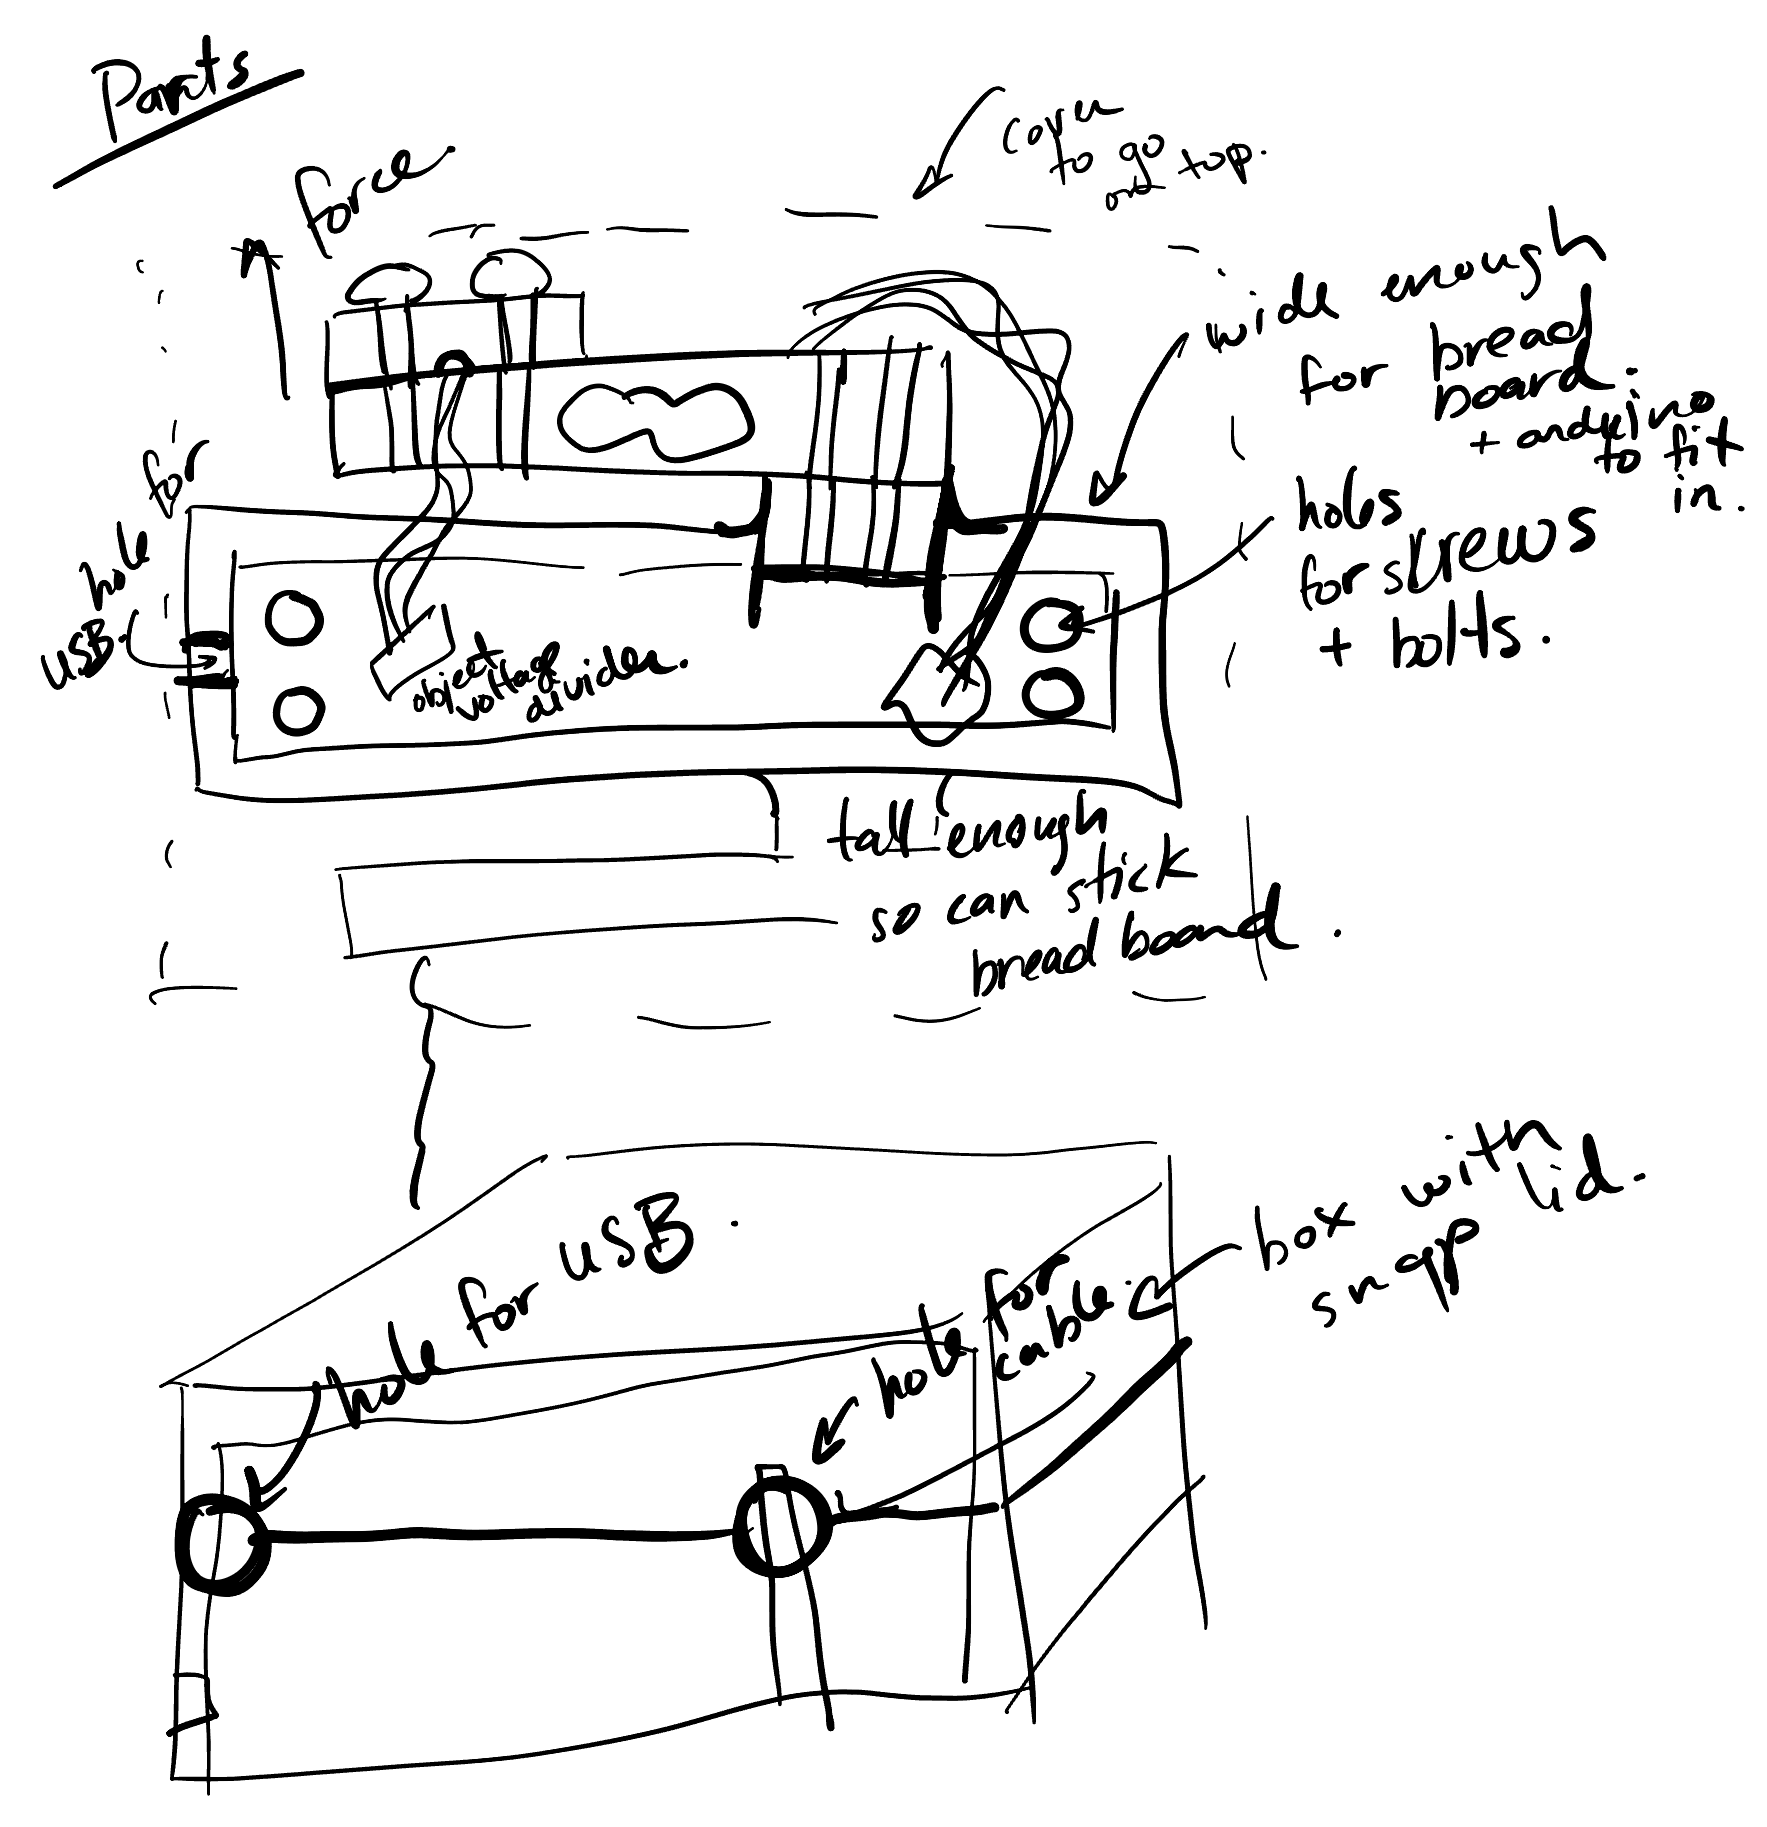 Parts
force
cover
to go
on top.
wide enough
for bread
board.
+ arduino
to fit
in.
hole for
USB.
holes
for screws
+ bolts.
object
voltage
divider.
tall enough
so can stick
bread board.
hole for USB.
hole for
cable.
box with
snap lid.